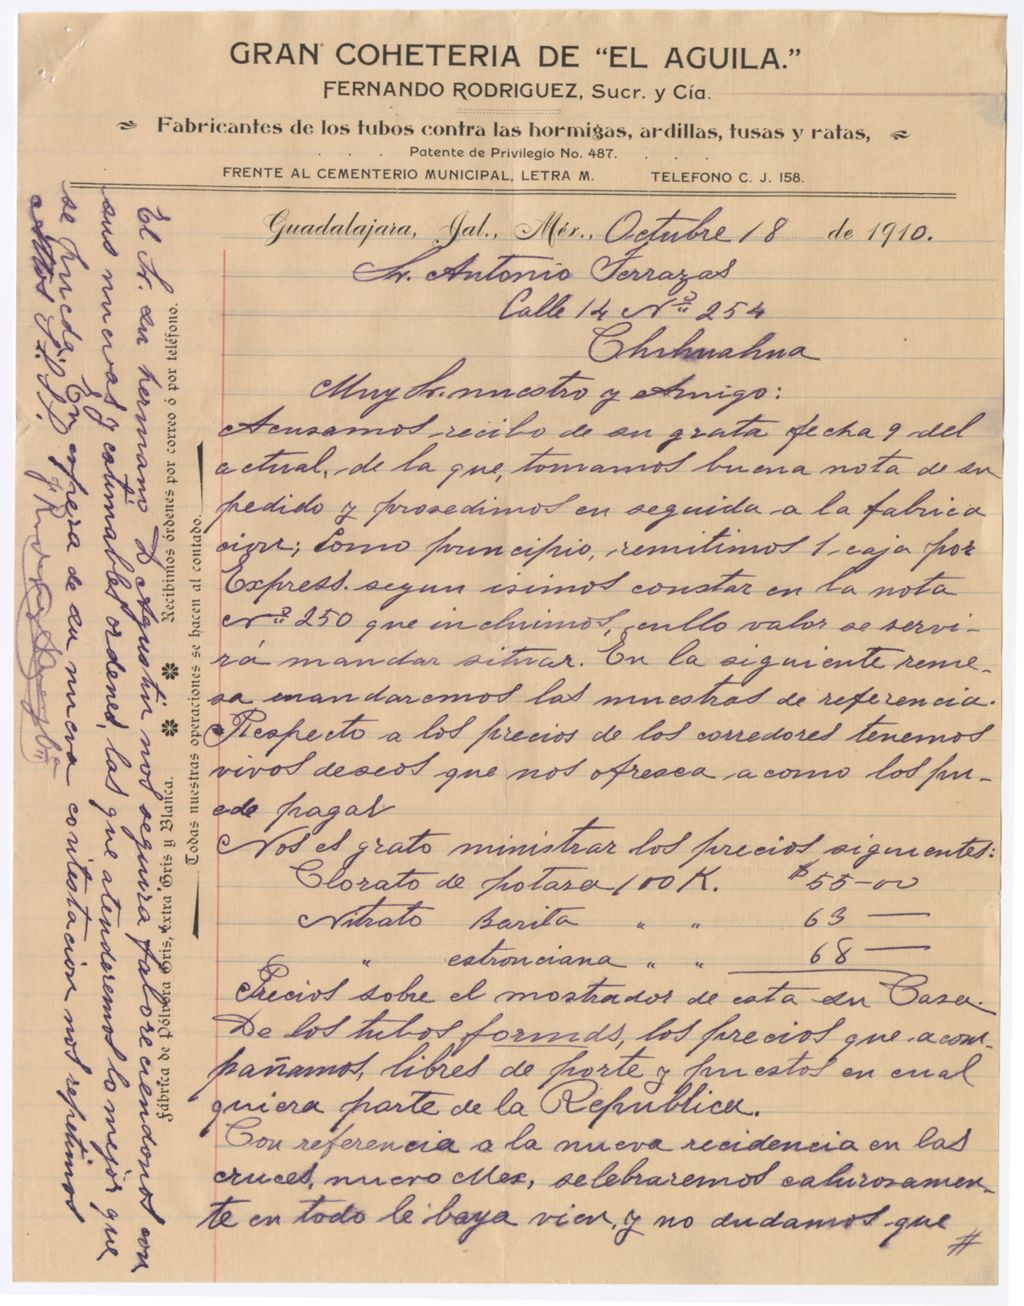 GRAN COHETERIA DE "EL AGUILA."
FERNANDO RODRIGUEZ, Sucr. y Cía.
Fabricantes de los tubos contra las hormigas, ardillas, tusas y ratas,
Patente de Privilegio No. 487.
FRENTE AL CEMENTERIO MUNICIPAL, LETRA M. TELEFONO C. J. 158.
Guadalajara, Jal., Méx., Octubre 18 de 1910.
Sr. Antonio Terrazas
Calle 14 Nº 254
Chihuahua
Muy Sr. nuestro y Amigo:
Acusamos recibo de su grata fecha 9 del
actual, de la que, tomamos buena nota de su
pedido y prosedimos en seguida a la fabrica
cion; Como principio, remitimos 1 caja por
Express. segun isimos constar en la nota
Nº 250 que incluimos, cullo valor se servi-
rá mandar situar. En la siguiente reme-
sa mandaremos las muestras de referencia.
Respecto a los precios de los corredores tenemos
vivos deseos que nos ofresca a como los pu-
ede pagar
Nos es grato ministrar los precios siguientes:
Clorato de potasa 100 K. $ 55-00
Nitrato Barita " " 63 —
" estronciana " " 68 —
Precios sobre el mostrador de esta su Casa.
De los tubos formds, los precios que acom-
pañamos, libres de porte y puestos en cual
quiera parte de la Republica.
Con referencia a la nueva recidencia en las
cruces, nuevo Mex, selebraremos calurosamen-
te en todo le baya vien, y no dudamos que
#
Todas nuestras operaciones se hacen al contado.
Fábrica de Pólvora Gris, extra Gris y Blanca. Recibimos órdenes por correo ó por teléfono.
El Sr. su hermano D. Agustin nos seguira faboreciendonos con
sus nuevas y estimables ordenes, las que atenderemos lo mejor que
se pueda. En espera de su nueva contestacion nos repetimos
attos S.S.S.